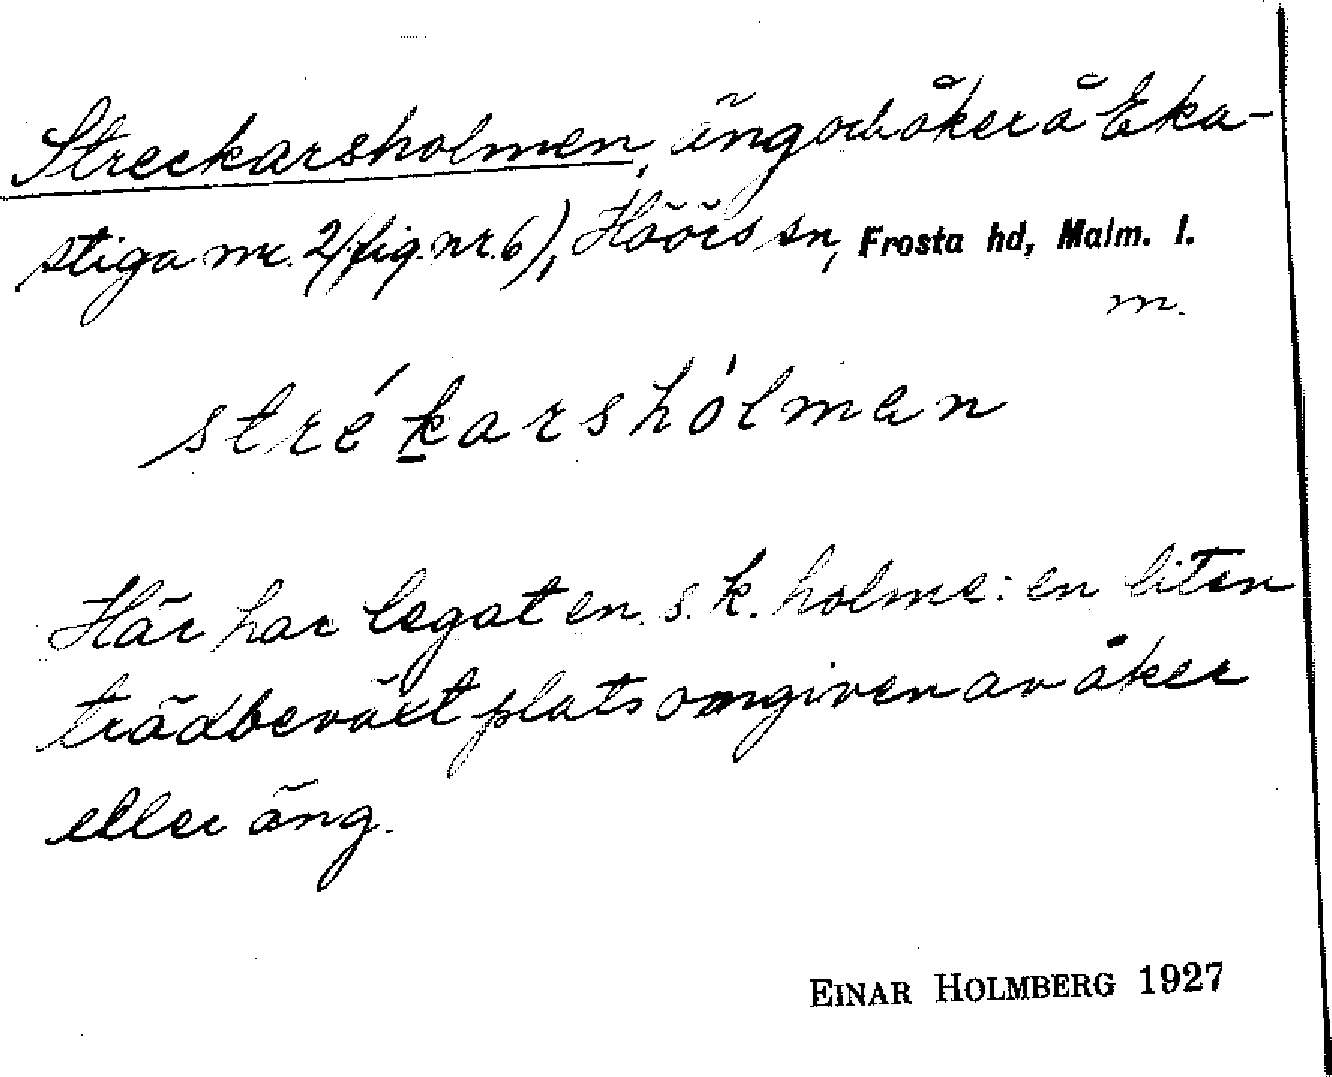 Streckarsholmen, äng och åker å Eka-
stiga nr. 2 (fig. nr. 6), Höörs sn, Frosta hd, Malm. l.
m.
strékarshólman
Här har legat en s.k. holme: en liten
trädbeväxt plats omgiven av åker
eller äng.
EINAR HOLMBERG 1927